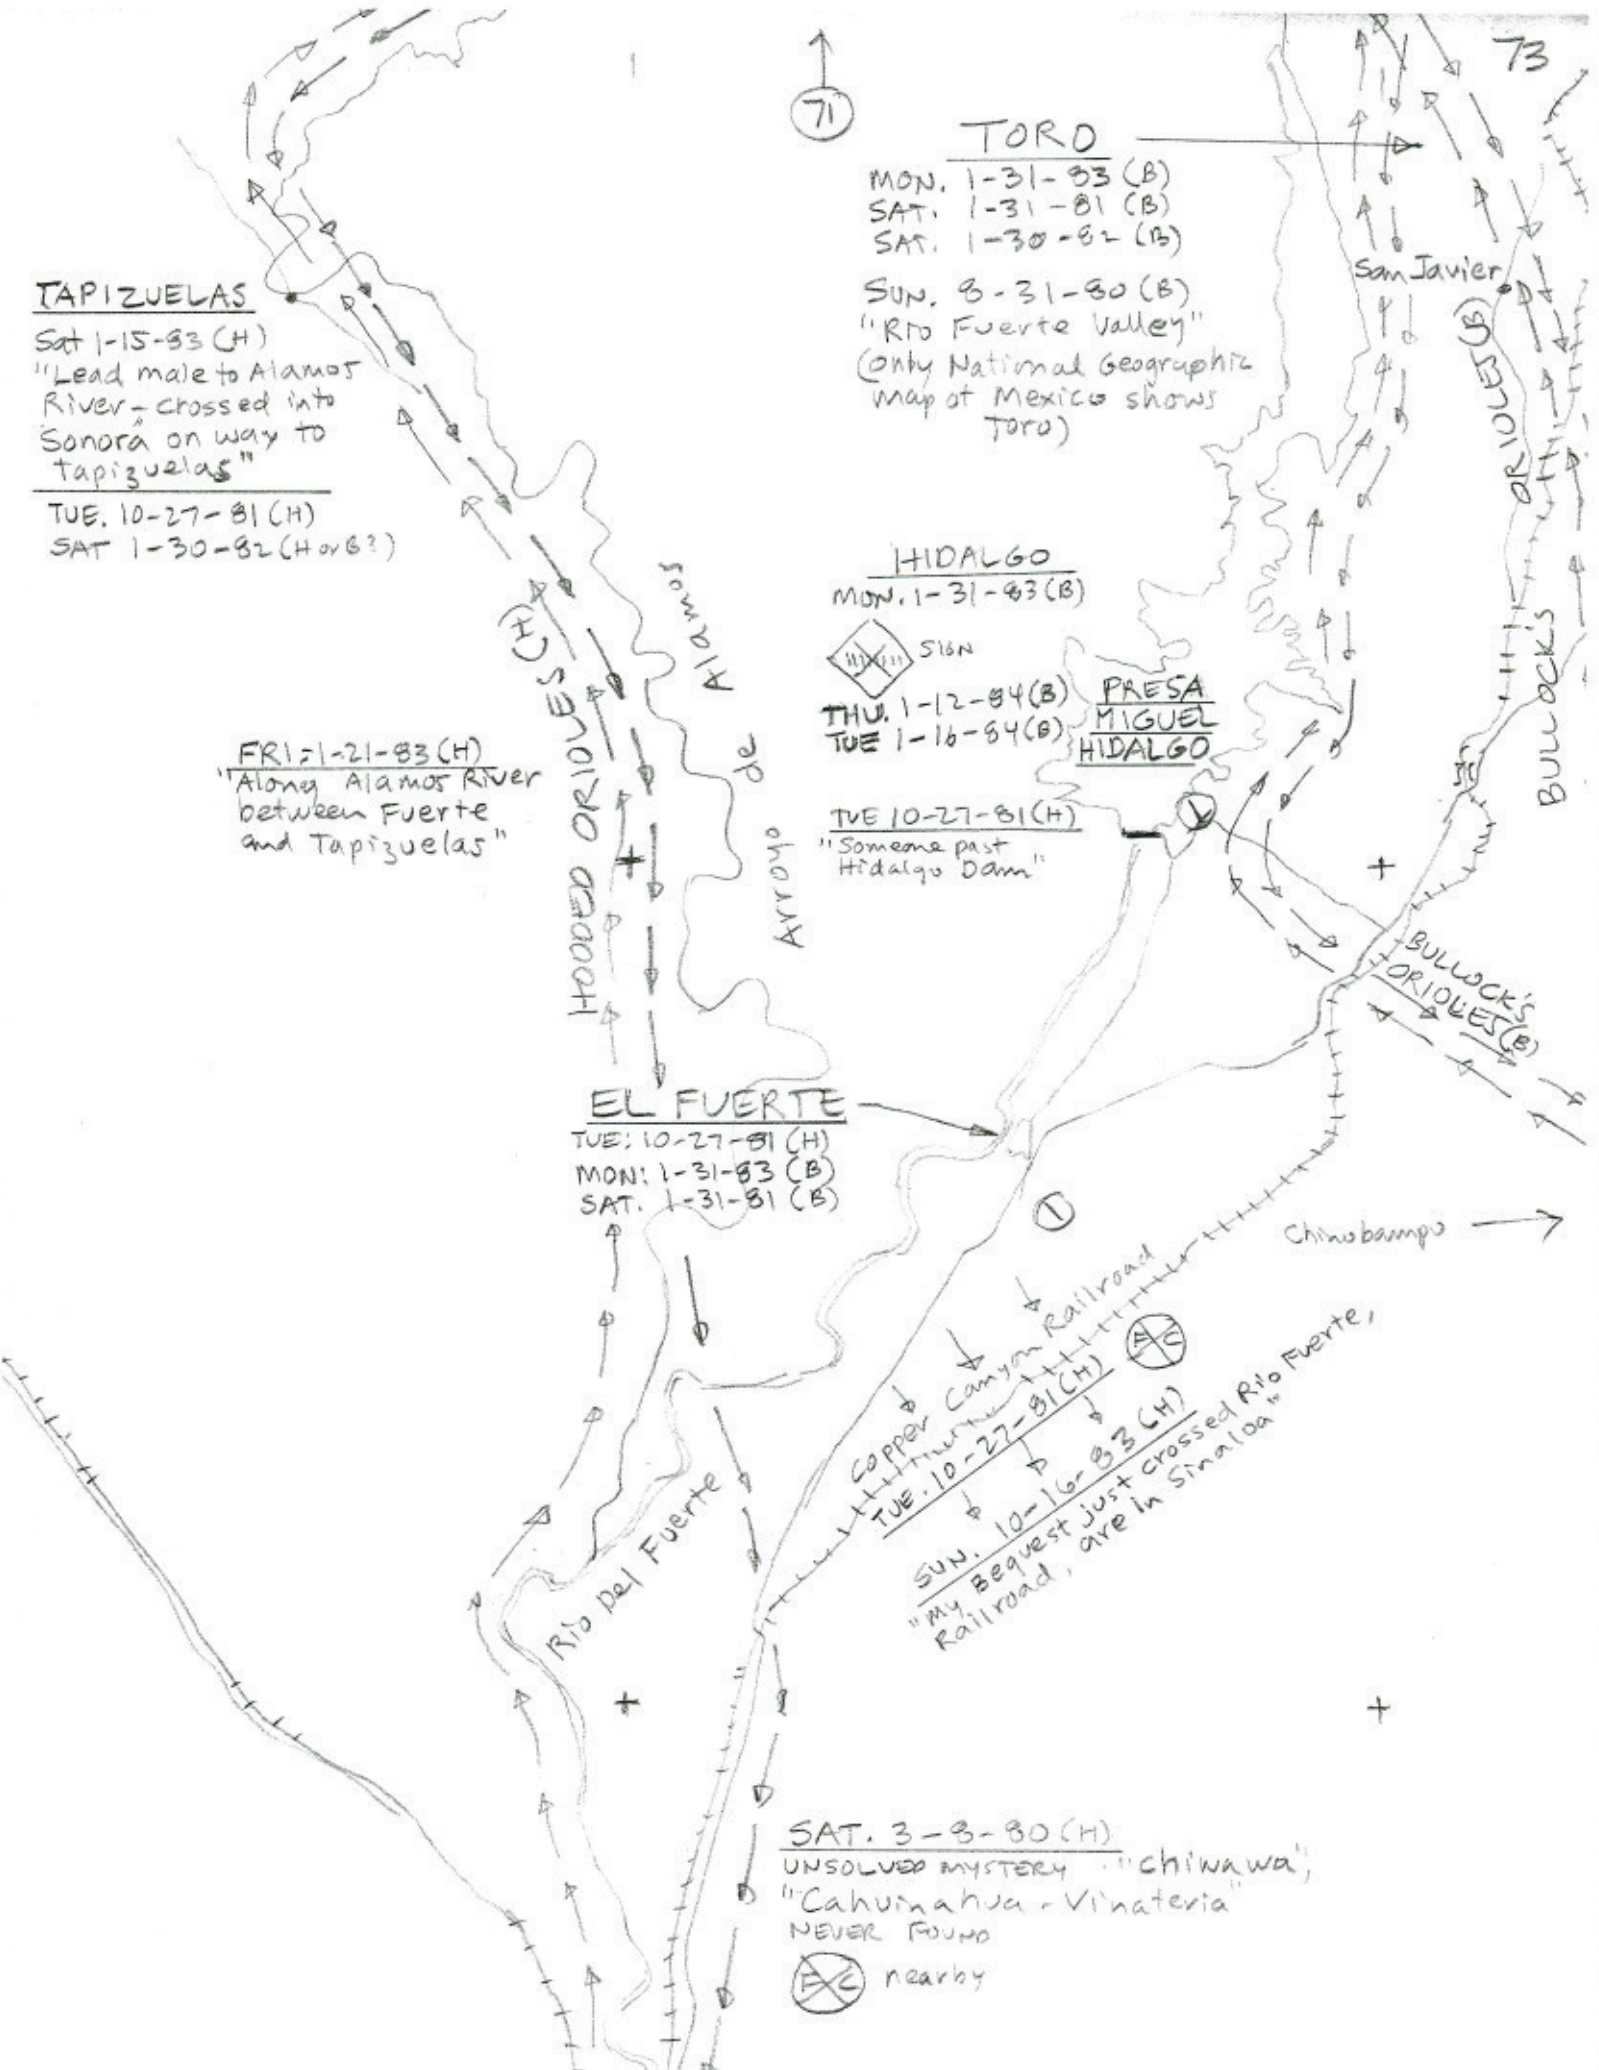 73
71
TORO
MON. 1-31-83 (B)
SAT. 1-31-81 (B)
SAT. 1-30-82 (B)
SUN. 8-31-80 (B)
"Rio Fuerte Valley"
(only National Geographic
map of Mexico shows
Toro)
San Javier
TAPIZUELAS
Sat 1-15-83 (H)
"Lead male to Alamos
River - crossed into
Sonora" on way to
Tapizuelas"
TUE. 10-27-81 (H)
SAT 1-30-82 (H or B?)
HOODED ORIOLES (H)
Arroyo de Alamos
BULLOCK'S ORIOLES (B)
HIDALGO
MON. 1-31-83 (B)
SIGN
THU. 1-12-84 (B)
TUE 1-16-84 (B)
PRESA
MIGUEL
HIDALGO
FRI: 1-21-83 (H)
"Along Alamos River
between Fuerte
and Tapizuelas"
TUE 10-27-81 (H)
"Someone past
Hidalgo Dam"
1
BULLOCK'S
ORIOLES (B)
EL FUERTE
TUE: 10-27-81 (H)
MON: 1-31-83 (B)
SAT. 1-31-81 (B)
1
Chinobampo
Copper Canyon Railroad
E C
TUE. 10-27-81 (H)
SUN. 10-16-83 (H)
"My Bequest just crossed Rio Fuerte,
Railroad, are in Sinaloa"
Rio Del Fuerte
SAT. 3-8-80 (H)
UNSOLVED MYSTERY "Chiwawa",
"Cahuinahua - Vinateria"
NEVER FOUND
E C nearby